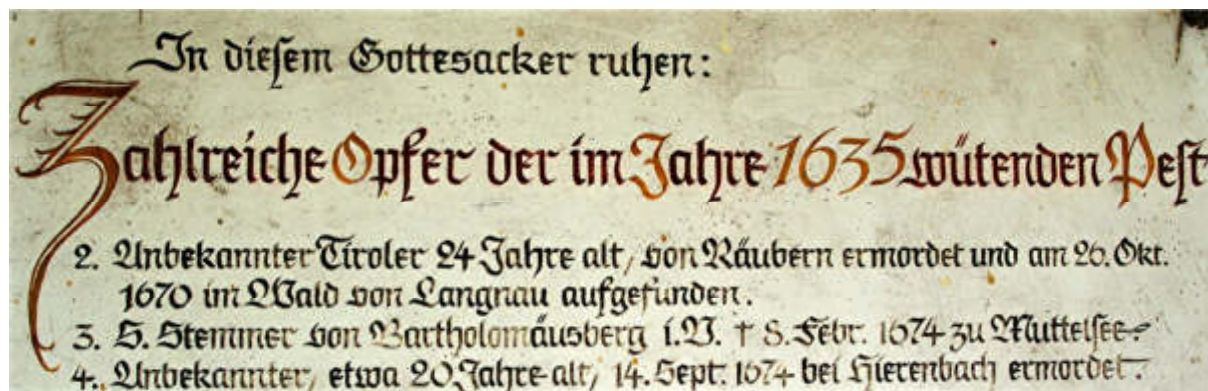 In diesem Gottesacker ruhen:
Zahlreiche Opfer der im Jahre 1635 wütenden Pest
2. Unbekannter Tiroler 24 Jahre alt, von Räubern ermordet und am 26. Okt.
1670 im Wald von Langnau aufgefunden.
3. S. Stemmer von Bartholomäusberg i.V. † 8. Febr. 1674 zu Muttelsee.
4. Unbekannter, etwa 20 Jahre alt, 14. Sept. 1674 bei Hierenbach ermordet.